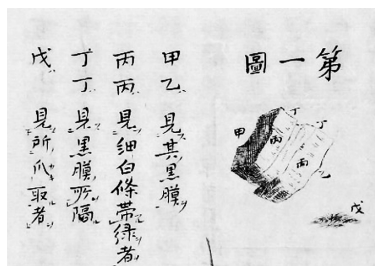 第一圖
丁
丁
甲
丙
丙
乙
戊
甲乙 見其黒膜
丙丙 見細白條帶緑者
丁丁 見黒膜所隔
戊 見所爪取者